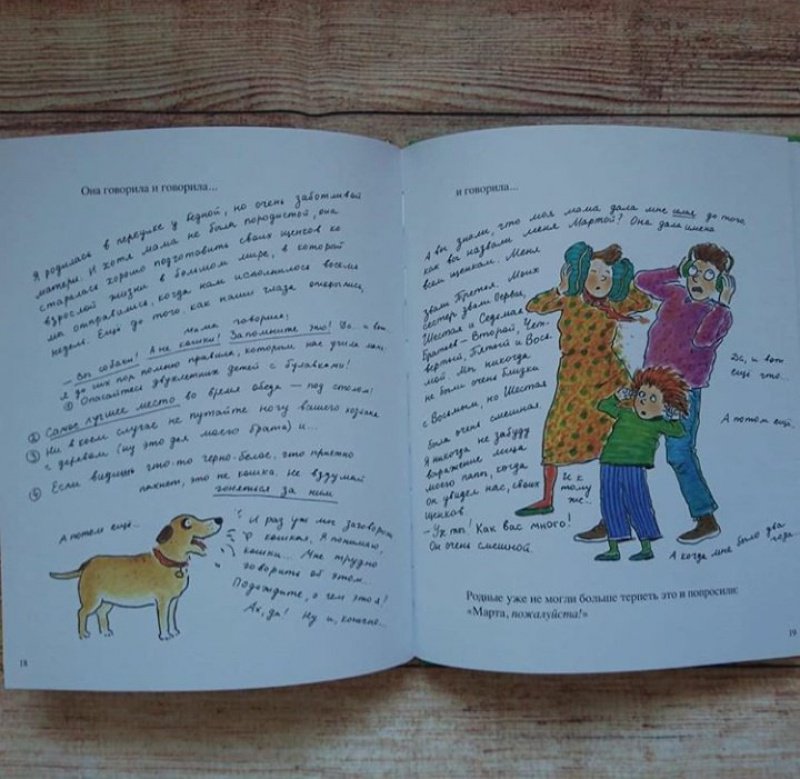 Она говорила и говорила...
Я родилась в переулке у бедной, но очень заботливой
матери. И хотя мама не была породистой, она
старалась хорошо подготовить своих щенков ко
взрослой жизни в большом мире, в который
мы отправились, когда нам исполнилось восемь
недель. Ещё до того, как наши глаза открылись,
мама говорила:
– Вы собаки! А не кошки! Запомните это! Да... и вот
я до сих пор помню правила, которым нас учила мама:
① Опасайтесь двухлетних детей с булавками!
② Самое лучшее место во время обеда – под столом!
③ Ни в коем случае не путайте ногу вашего хозяина
с деревом (ну это для моего брата) и...
④ Если видишь что-то чёрно-белое, что приятно
пахнет, это не кошка. Не вздумай
гоняться за ним
А потом ещё...
И раз уж мы заговорили
о кошках, Я понимаю,
кошки... Мне трудно
говорить об этом...
Подождите, о чем это я?
Ах, да! Ну и, конечно...
18
и говорила...
А вы знали, что моя мама дала мне имя до того,
как вы назвали меня Мартой? Она дала имена
всем щенкам. Меня
звали Третья. Моих
сестёр звали Первая,
Шестая и Седьмая
Братьев – Второй, Чет-
вертый, Пятый и Вось
мой. Мы никогда
не были очень близки
с Восьмым, но Шестая
была очень смешная.
Я никогда не забуду
выражение лица
моего папы, когда
он увидел нас, своих
щенков.
– Ух ты! Как вас много!
Он очень смешной.
И к
тому
же...
Да, и вот
ещё что...
А потом ещё...
А когда мне было два
года...
Родные уже не могли больше терпеть это и попросили:
«Марта, пожалуйста!»
19